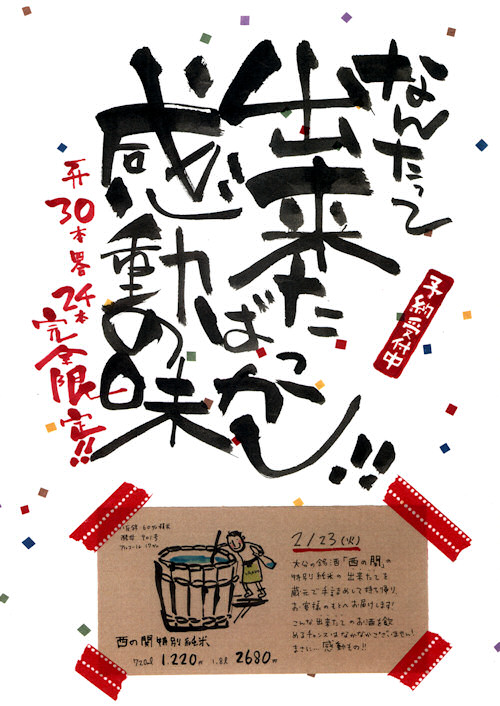 なんたって
出来たばっかし!!
感動の味
予約受付中
30本
24本
完全限定!!
2/23(火)
大分の銘酒「西の関」の
特別純米の出来たてを
蔵元で手詰めして持ち帰り
お客様のもとへお届けします!
こんな出来たてのお酒を飲
めるチャンスはなかなかございません!
まさに…感動もの!!
西の関 特別純米
720ml 1.220円 1.8L 2680円